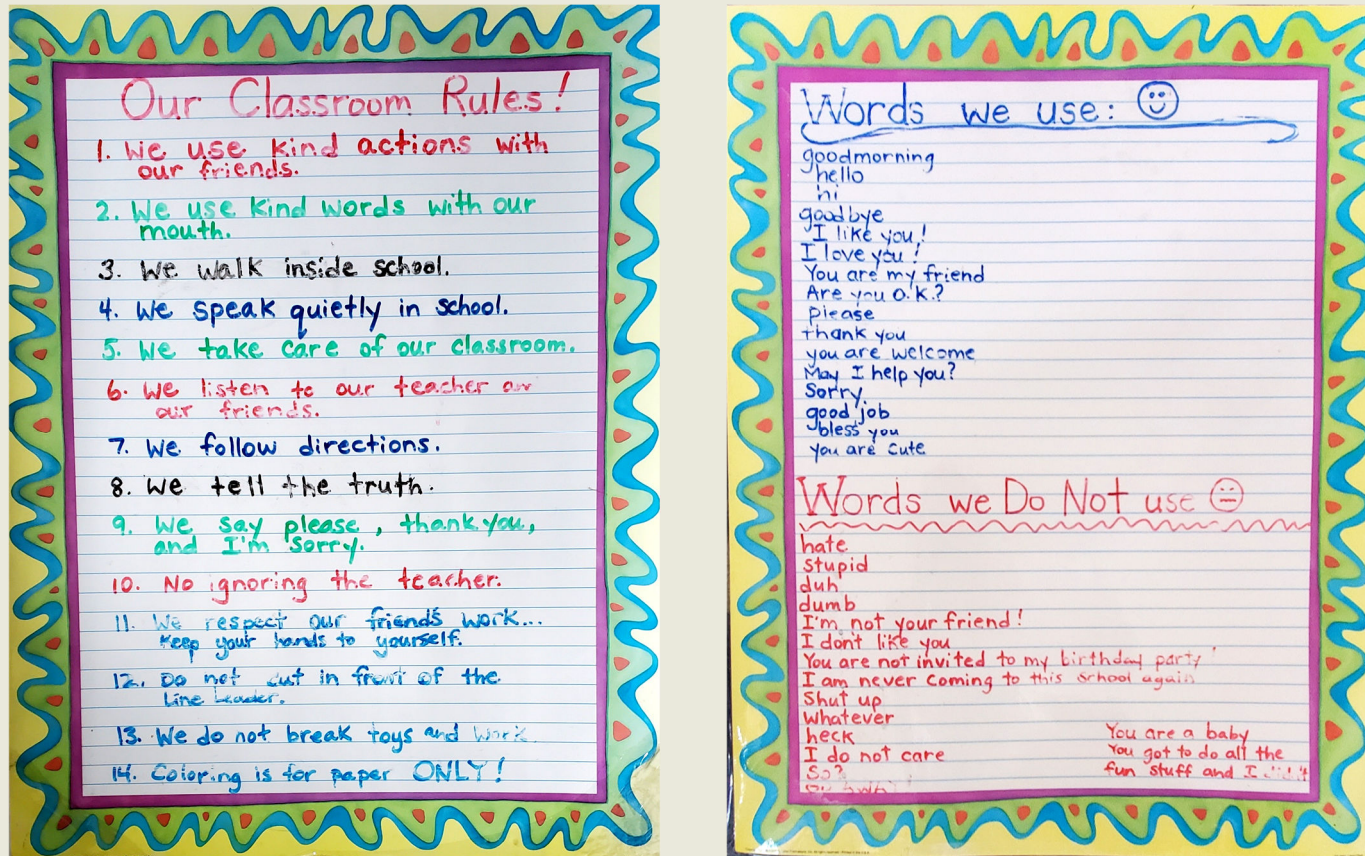 Our Classroom Rules!
1. We use kind actions with
our friends.
2. We use kind words with our
mouth.
3. We walk inside school.
4. We speak quietly in school.
5. We take care of our classroom.
6. We listen to our teacher
our friends.
7. We follow directions.
8. We tell the truth.
9. We say please, thank you,
and I'm sorry.
10. No ignoring the teacher.
11. We respect our friend's work...
Keep your hands to yourself.
12. Do not cut in front of the
Line Leader.
13. We do not break toys and work
14. Coloring is for paper ONLY!
Words we use:
goodmorning
hello
hi
goodbye
I like you!
I love you!
You are my friend
Are you O.K.?
please
thank you
you are welcome
May I help you?
Sorry.
good job
bless you
you are cute
Words we Do Not use
hate
stupid
duh
dumb
I'm not your friend!
I don't like you
You are not invited to my birthday party
I am never coming to this school again
Shut up
Whatever
heck
I do not care
So?
You are a baby
You got to do all the
fun stuff and I didn't